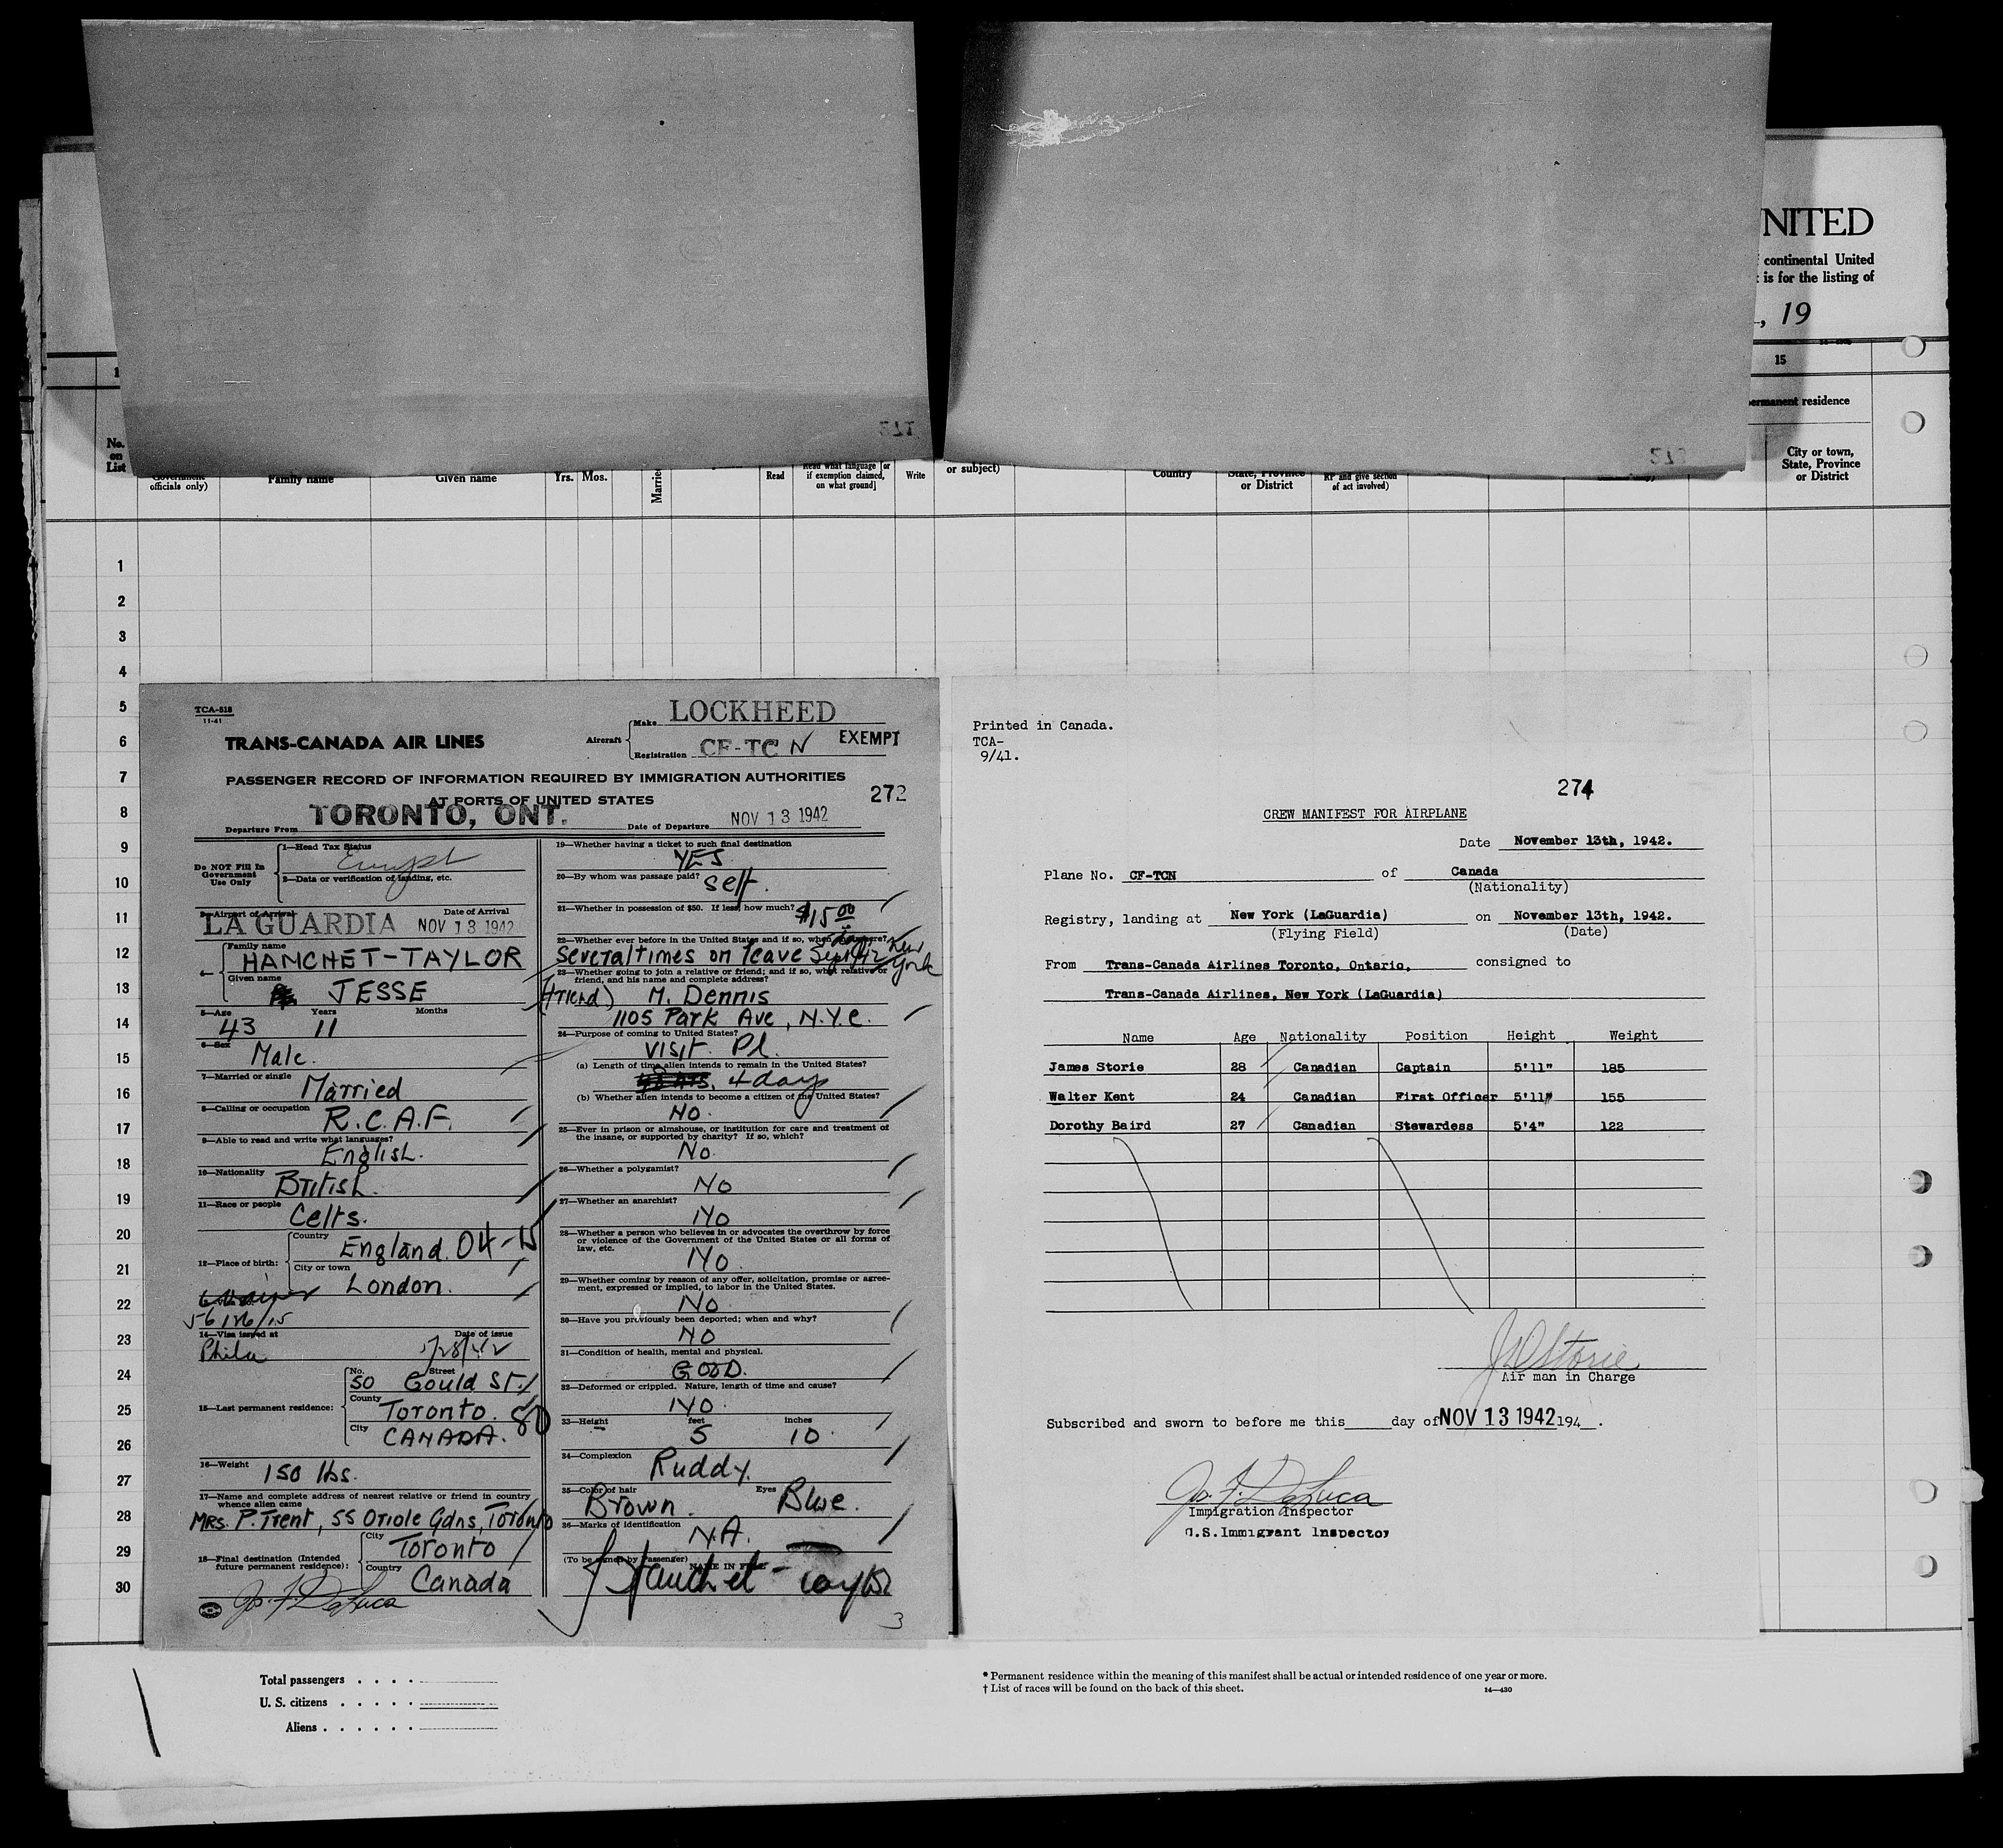 NITED
continental United
is for the listing of
, 19
15
permanent residence
No.
on
List
officials only)
Family name
Given name
Yrs. Mos.
Married
Read
Read what language [or
if exemption claimed,
on what ground]
Write
or subject)
Country
State, Province
or District
RP and give section
of act involved)
City or town,
State, Province
or District
1
2
3
4
5
6
7
8
9
10
11
12
13
14
15
16
17
18
19
20
21
22
23
24
25
26
27
28
29
30
TCA-518
11-41
TRANS-CANADA AIR LINES
Aircraft
Make LOCKHEED
Registration CF-TC N
EXEMPT
PASSENGER RECORD OF INFORMATION REQUIRED BY IMMIGRATION AUTHORITIES
AT PORTS OF UNITED STATES
272
Departure From TORONTO, ONT.
Date of Departure NOV 13 1942
Do NOT Fill In
Government
Use Only
1—Head Tax Status
Exempt
2—Data or verification of landing, etc.
3—Airport of Arrival
Date of Arrival
LA GUARDIA NOV 13 1942
4—
Family name
HANCHET-TAYLOR
Given name
JESSE
5—Age Years Months
43 11
6—Sex
Male.
7—Married or single
Married
8—Calling or occupation
R.C.A.F.
9—Able to read and write what languages?
English.
10—Nationality
British.
11—Race or people
Celts.
12—Place of birth:
Country
England. 04-15
City or town
London.
14—Visa issued at Date of issue
Phila
15—Last permanent residence:
No. Street
50 Gould St.
County
Toronto. 80
City
CANADA.
16—Weight
150 lbs.
17—Name and complete address of nearest relative or friend in country
whence alien came
MRS. P. Trent, 55 Oriole Gdns, Toronto
18—Final destination (Intended
future permanent residence):
City
Toronto
Country
Canada
Jos. F. DeLuca
19—Whether having a ticket to such final destination
YES
20—By whom was passage paid?
self.
21—Whether in possession of $50. If less, how much?
$15.00
22—Whether ever before in the United States and if so, when and where?
Several times on leave Sept/42 New York
23—Whether going to join a relative or friend; and if so, what relative or
friend, and his name and complete address?
(friend) M. Dennis
1105 Park Ave, N.Y.C.
24—Purpose of coming to United States?
Visit. Pl.
(a) Length of time alien intends to remain in the United States?
4 days
(b) Whether alien intends to become a citizen of the United States?
NO.
25—Ever in prison or almshouse, or institution for care and treatment of
the insane, or supported by charity? If so, which?
No.
26—Whether a polygamist?
NO
27—Whether an anarchist?
NO
28—Whether a person who believes in or advocates the overthrow by force
or violence of the Government of the United States or all forms of
law, etc.
NO
29—Whether coming by reason of any offer, solicitation, promise or agree-
ment, expressed or implied, to labor in the United States.
No.
30—Have you previously been deported; when and why?
NO
31—Condition of health, mental and physical.
GOOD.
32—Deformed or crippled. Nature, length of time and cause?
NO.
33—Height feet inches
5 10.
34—Complexion
Ruddy.
35—Color of hair Eyes
Brown. Blue.
36—Marks of identification
N.A.
(To be signed by Passenger)
NAME IN FULL
J Hanchet-Taylor
3
Printed in Canada.
TCA-
9/41.
274
CREW MANIFEST FOR AIRPLANE
Date November 13th, 1942.
Plane No. CF-TCN of Canada
(Nationality)
Registry, landing at New York (LaGuardia) on November 13th, 1942.
(Flying Field) (Date)
From Trans-Canada Airlines Toronto, Ontario, consigned to
Trans-Canada Airlines, New York (LaGuardia)
Name Age Nationality Position Height Weight
James Storie 28 Canadian Captain 5'11" 185
Walter Kent 24 Canadian First Officer 5'11" 155
Dorothy Baird 27 Canadian Stewardess 5'4" 122
J D Storie
Air man in Charge
Subscribed and sworn to before me this day of NOV 13 1942 194 .
Jos. F. DeLuca
Immigration Inspector
U.S. Immigrant Inspector
Total passengers . . . .
U. S. citizens . . . . .
Aliens . . . . . .
* Permanent residence within the meaning of this manifest shall be actual or intended residence of one year or more.
† List of races will be found on the back of this sheet.
14—430